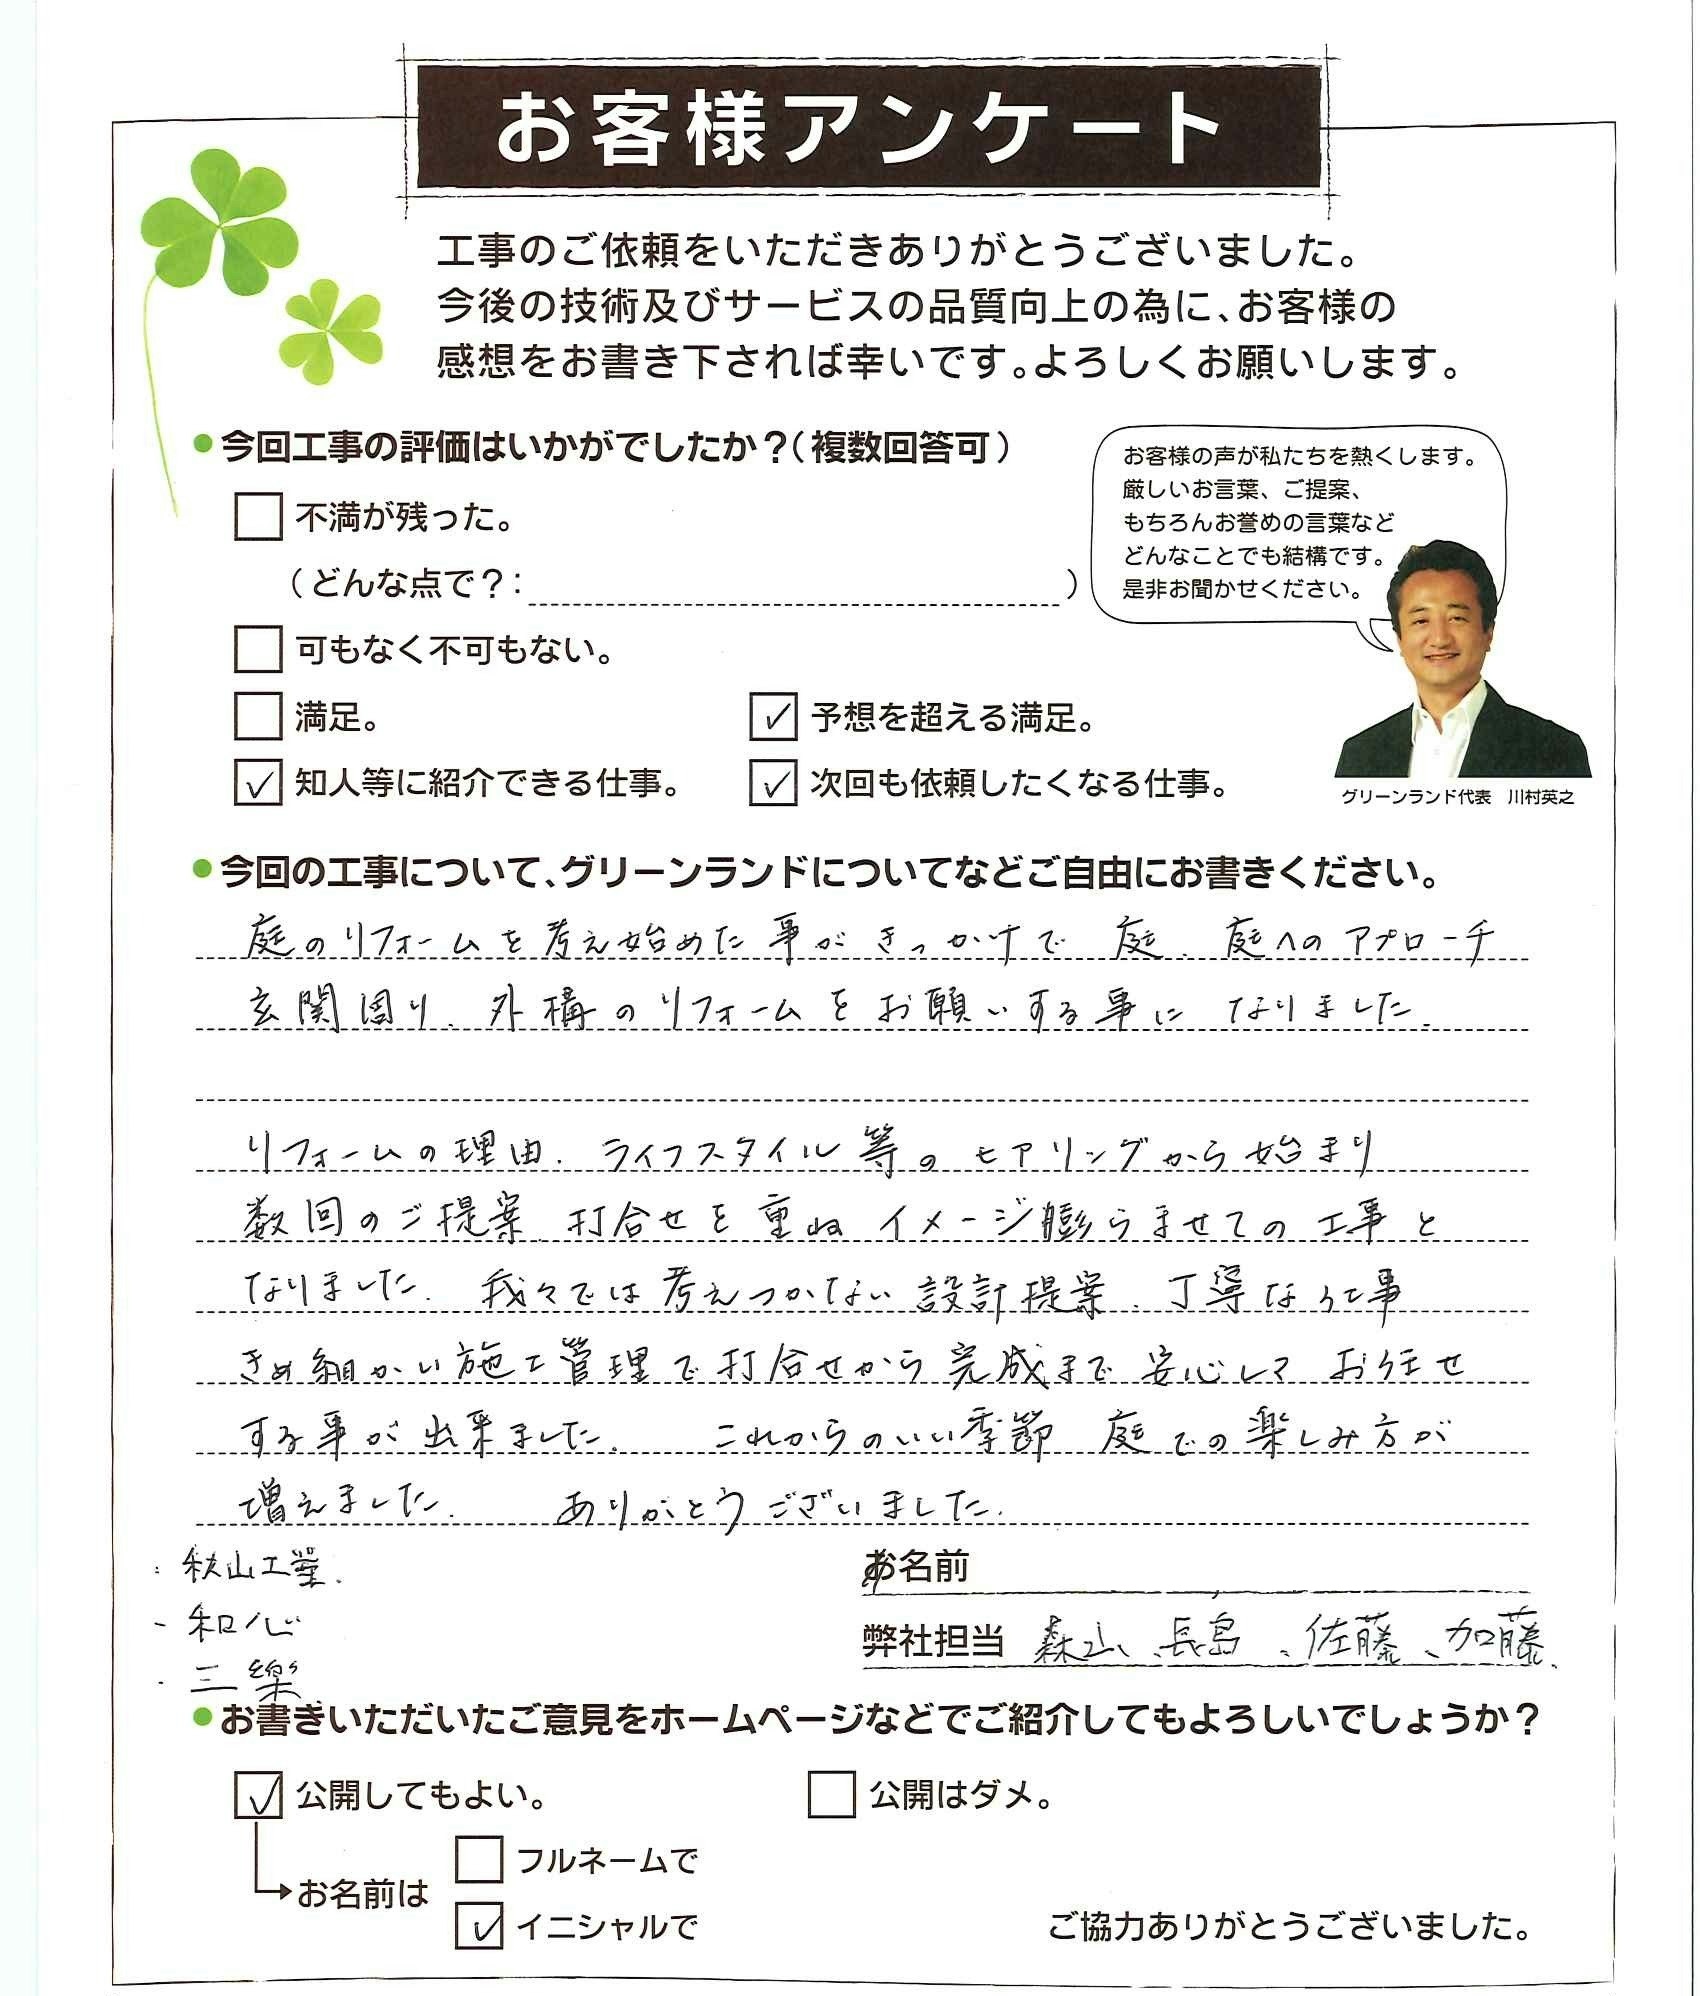 お客様アンケート
工事のご依頼をいただきありがとうございました。
今後の技術及びサービスの品質向上の為に、お客様の
感想をお書き下されば幸いです。よろしくお願いします。
●今回工事の評価はいかがでしたか？（複数回答可）
お客様の声が私たちを熱くします。
厳しいお言葉、ご提案、
もちろんお誉めの言葉など
どんなことでも結構です。
是非お聞かせください。
グリーンランド代表 川村英之
□ 不満が残った。
（どんな点で？： ）
□ 可もなく不可もない。
□ 満足。 ☑ 予想を超える満足。
☑ 知人等に紹介できる仕事。 ☑ 次回も依頼したくなる仕事。
●今回の工事について、グリーンランドについてなどご自由にお書きください。
庭のリフォームを考え始めた事がきっかけで 庭、庭へのアプローチ
玄関周り、外構のリフォームをお願いする事に なりました。
リフォームの理由、ライフスタイル等のヒアリングから始まり
数回のご提案、打合せを重ね イメージ膨らませての工事と
なりました。我々では考えつかない設計提案、丁寧な仕事
きめ細かい施工管理で打合せから完成まで安心して お任せ
する事が出来ました。 これからのいい季節 庭での楽しみ方が
増えました。 ありがとうございました。
・秋山工業
・和心
・三樂
お名前
弊社担当 森山、長島、佐藤、加藤
●お書きいただいたご意見をホームページなどでご紹介してもよろしいでしょうか？
☑ 公開してもよい。 □ 公開はダメ。
お名前は
□ フルネームで
☑ イニシャルで
ご協力ありがとうございました。